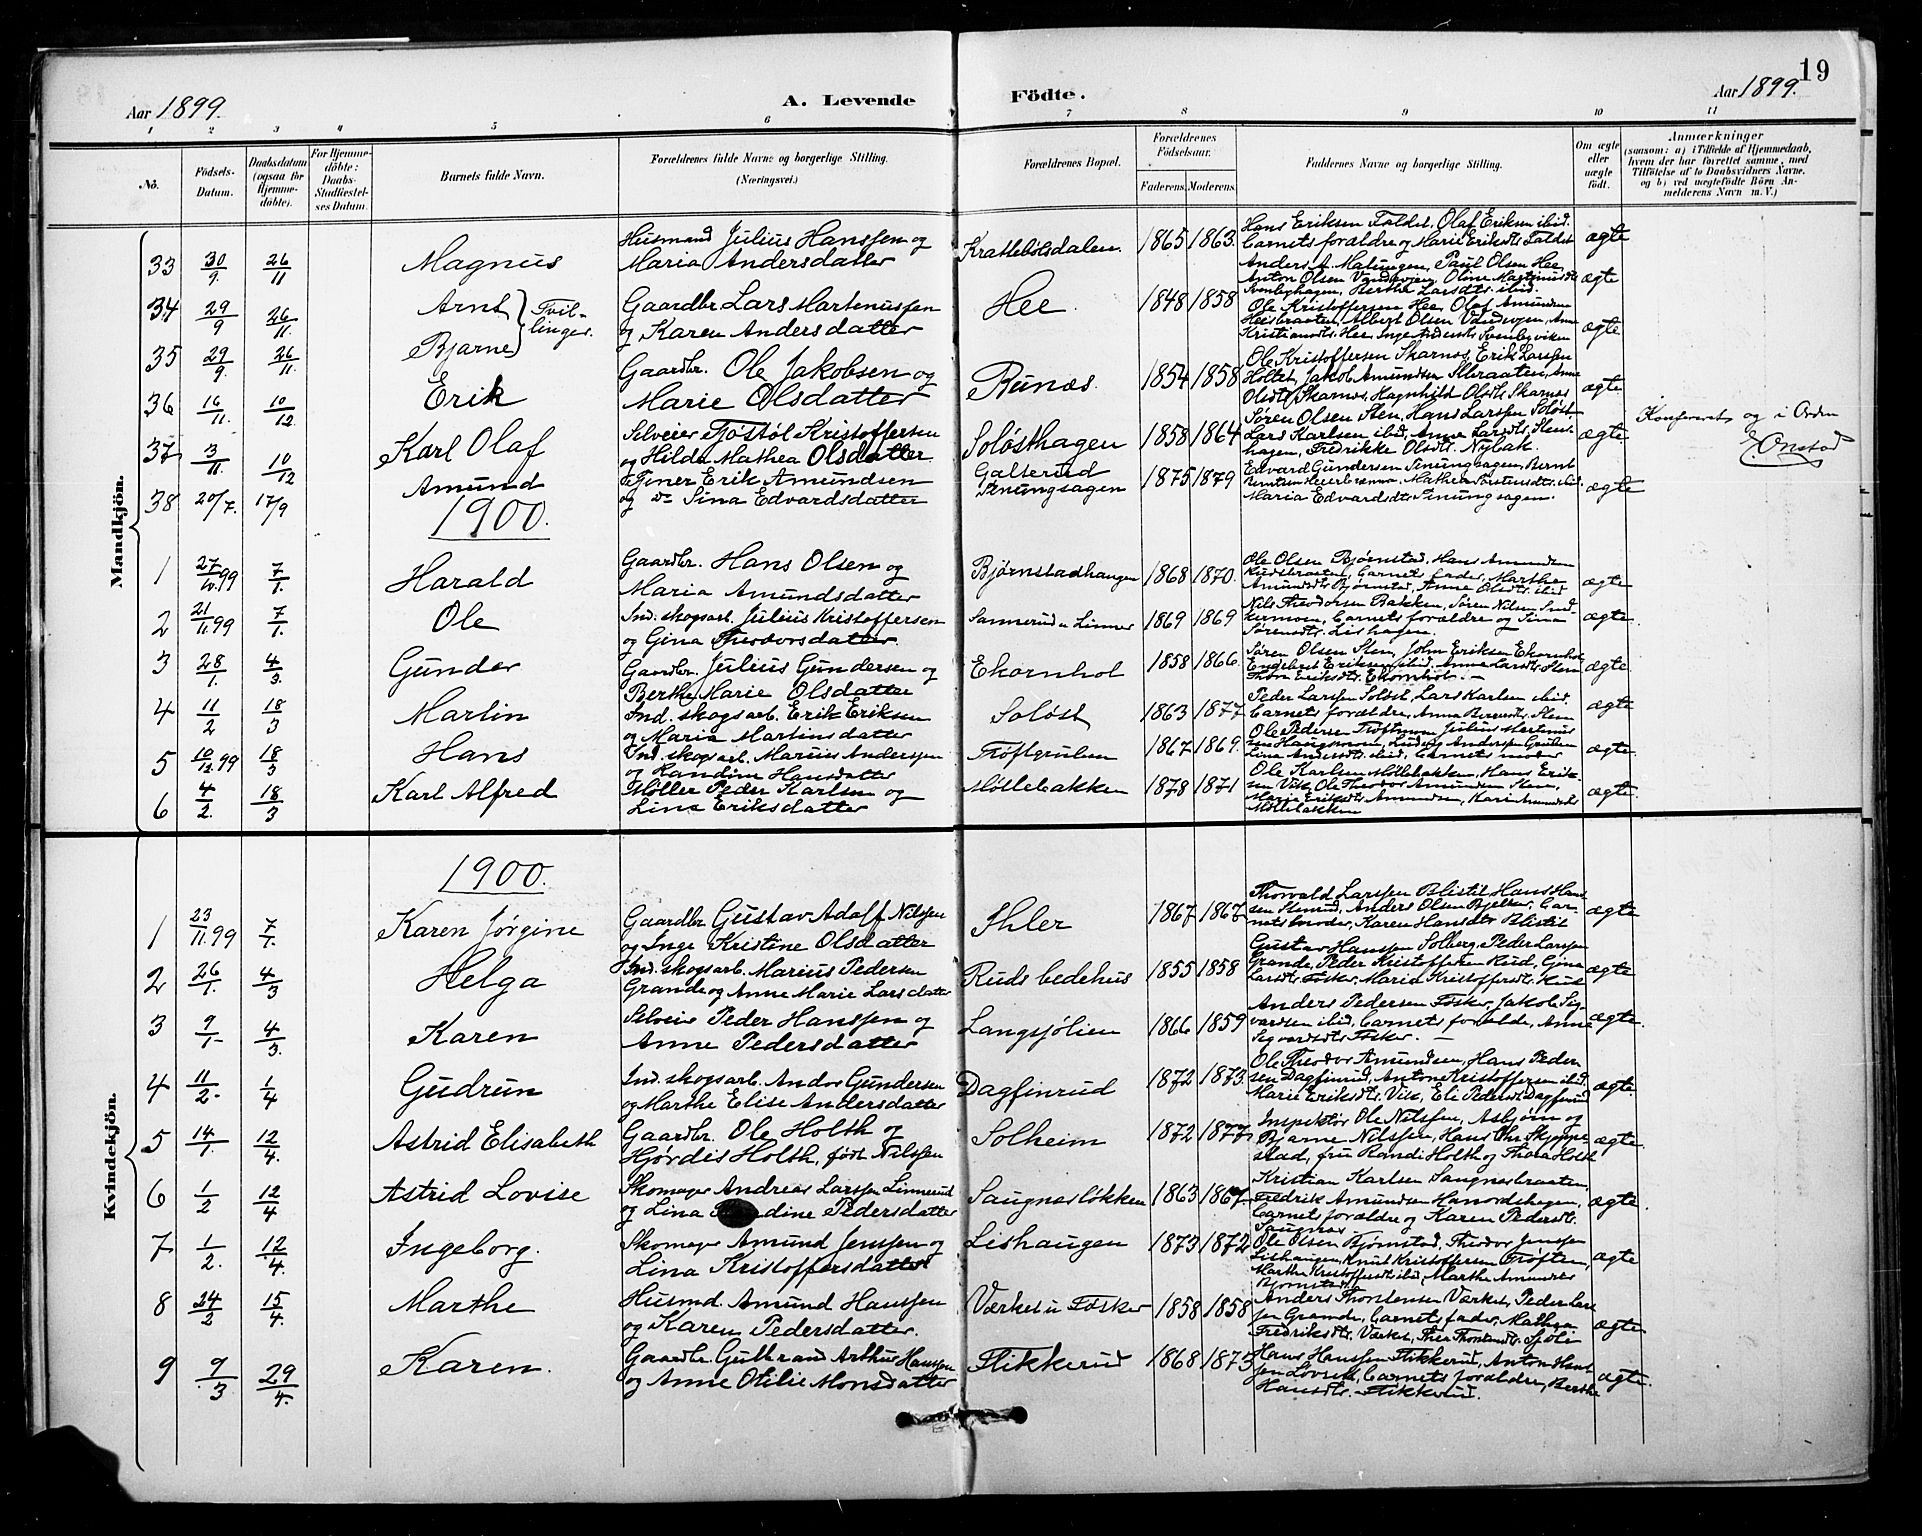 19
Aar 1899. A. Levende Födte. Aar 1899.
1 2 3 4 5 6 7 8 9 10 11
No. Födsels-Datum. Daabsdatum (ogsaa for Hjemmedöbte). For Hjemmedöbte: Daabs-Stadfæstelses Datum. Barnets fulde Navn. Forældrenes fulde Navne og borgerlige Stilling. (Næringsvei.) Forældrenes Bopæl. Forældrenes Födselsaar. Faderens. Moderens. Faddernes Navne og borgerlige Stilling. Om ægte eller uægte födt. Anmærkninger (saasom: a) i Tilfælde af Hjemmedaab, hvem der har forrettet samme, med Tilföielse af to Daabsvidners Navne. og b) ved uægtefödte Börn Anmelderens Navn m. V.)
Mandkjön.
33 30/9. 26/11 Magnus Husmand Julius Hanssen og Maria Andersdatter Krattebölsdalen. 1865 1863. Hans Eriksen Faldet, Olaf Eriksen ibid. Barnets forældre og Marie Eriksdtr. Faldet ægte
34 29/9 26/11. Arnt } Tvillinger. Gaardbr Lars Martenussen og Karen Andersdatter Hee. 1848 1858 Anders A. Malungen, Paul Olsen Hee Anton Olsen Berthe Larsdtr. ibid. ægte
35 29/9. 26/11. Bjarne Ole Kristoffersen Hee, Olaf Amundsen Albert Olsen Kristiansdtr. Hee ægte
36 16/11. 10/12 Erik Gaardbr. Ole Jakobsen og Marie Olsdatter Runæs. 1854 1858 Ole Kristoffersen Skarnæs, Erik Larssen Holtet, Jakob Amundsen Olsdtr Skarnæs, Magnhild Olsdtr. Skarnæs ægte
37 3/11. 10/12 Karl Olaf Selveier Tjöstöl Kristoffersen og Hilda Mathea Olsdatter Solösthagen 1858 1864 Sören Olsen Sten, Hans Larssen Solöst Lars Karlsen ibid, Anne Larsdtr. Stenhagen, Fredrikke Olsdtr. Nybak. ægte Konfereret og i Orden Onstad
38 20/7. 17/9 Amund Tjener Erik Amundsen og do Sina Edvardsdatter Galterud Sinungsagen 1875 1879 Edvard Gundersen Sinungsagen, Bernt Mathea ibid. Maria Edvardsdtr Sinungsagen. ægte
1900.
1 27/10.99 7/1. Harald Gaardbr. Hans Olsen og Maria Amundsdatter Bjørnstadhaugen 1868 1870. Ole Olsen Bjørnstad, Hans Amundsen Barnets fader, Marthe Amundsdtr Bjørnstad, Anne Olsdtr. ibid ægte
2 21/11.99 7/1. Ole Ind. skogsarb. Julius Kristoffersen og Gina Theodorsdatter Sannerud u Linner 1869 1869 Nils Theodorsen Bakken, Søren Nilsen Barnets forældre og Sina Sørensdtr. Lishagen. ægte.
3 28/1. 4/3. Gunder Gaardbr. Julius Gundersen og Berthe Marie Olsdatter Ekornhol 1858 1866. Søren Olsen Sten, John Eriksen Ekornhol Engebret Eriksen ibid, Anne Larsdtr. Sten Eriksdtr. Ekornhol. — ægte
4 11/2 18/3 Martin Ind. skogsarb. Erik Eriksen og Maria Martinsdatter Soløst 1863 1877 Peder Larssen Soløst, Lars Karlsen ibid. Barnets forældre, Anna Sten ægte
5 10/12.99 18/3 Hans Ind. skogsarb. Marius Anderssen og Handine Hansdatter Tröftgrulen 1867 1869. Ole Pedersen Julius Martinussen Haugsmoen, Ludvig Andersen Grulen Lina Andersdtr ibid, Barnets moder ægte.
6 4/2. 18/3 Karl Alfred Møller Peder Karlsen og Lina Eriksdatter Møllebakken 1878 1871 Ole Karlsen Møllebakken, Hans Eriksen Vik, Ole Theodor Amundsen Sten, Marie Eriksdtr Amundsen, Kari Amundsdtr Møllebakken ægte.
Kvindekjön.
1900.
1 23/11.99 7/1. Karen Jørgine Gaardbr Gustav Adolf Nilssen og Inge Kristine Olsdatter Ihler 1867 1867 Thorvald Larssen Blistil Hans Hanssen Anders Olsen Bjelker, Barnets moder, Karen Hansdtr Blistil ægte
2 26/1. 4/3 Helga Ind. skogsarb. Marius Pedersen Grande og Anne Marie Larsdatter Ruds bedehus 1855 1858 Gustav Hanssen Solberg, Peder Larssen Grande, Peder Kristoffersen Rud, Gina Larsdtr. Fosker, Maria Kristoffersdtr. Rud ægte
3 9/1. 4/3. Karen Selveier Peder Hanssen og Anne Pedersdatter Langsjölien 1866 1859 Anders Pedersen Fosker, Jakob Sigvardsen ibid, Barnets forælde, Anne Sigvardsdtr Fosker. — ægte.
4 11/2. 1/4 Gudrun Ind. skogsarb. Andor Gundersen og Marthe Elise Andersdatter Dagfinrud 1872 1873. Ole Theodor Amundsen, Hans Pedersen Dagfinrud, Antone Kristoffersen ibid. Marie Eriksdtr. Vik, Eli Pedersdtr Dagfinrud ægte.
5 14/1. 12/4. Astrid Elisabeth Gaardbr. Ole Holth og Hjørdis Holth, født Nilssen Solheim 1872 1877. Inspektör Ole Nilssen, Asbjørn og Bjarne Nilssen, Hans Chr. Skjeppestad, fru Randi Holth og Thora Holth ægte.
6 1/2 12/4 Astrid Lovise Skomager Andreas Larssen Linnerud og Lina Pedersdatter Saugnæslökken 1863 1867. Kristian Karlsen Saugnæsbraaten, Fredrik Amundsen Hanordshagen, Barnets forældre og Karen Pedersdtr. Saugnæs ægte.
7 1/2. 12/4. Ingeborg. Skomager Amund Jenssen og Lina Kristoffersdatter Lishaugen 1873 1872 Ole Olsen Bjørnstad, Theodor Jenssen Lishaugen, Knut Kristoffersen Tröften, Marthe Kristoffersdtr ibid, Marthe Amundsdtr Bjørnstad. ægte
8 24/2 15/4. Marthe Husmd. Amund Hanssen og Karen Pedersdatter. Værket u Fosker 1858 1858 Anders Thorstensen Værket, Peder Larssen Grande, Barnets fader, Mathea Fredriksdtr. Værket, Sjöli ægte
9 9/3 29/4. Karen. Gaardbr. Gulbrand Arthur Hanssen og Anne Otilie Monsdatter Flikkerud 1868 1875 Hans Hanssen Flikkerud, Anton Hanssen Barnets forældre, Berthe Hansdtr. Flikkerud. ægte.